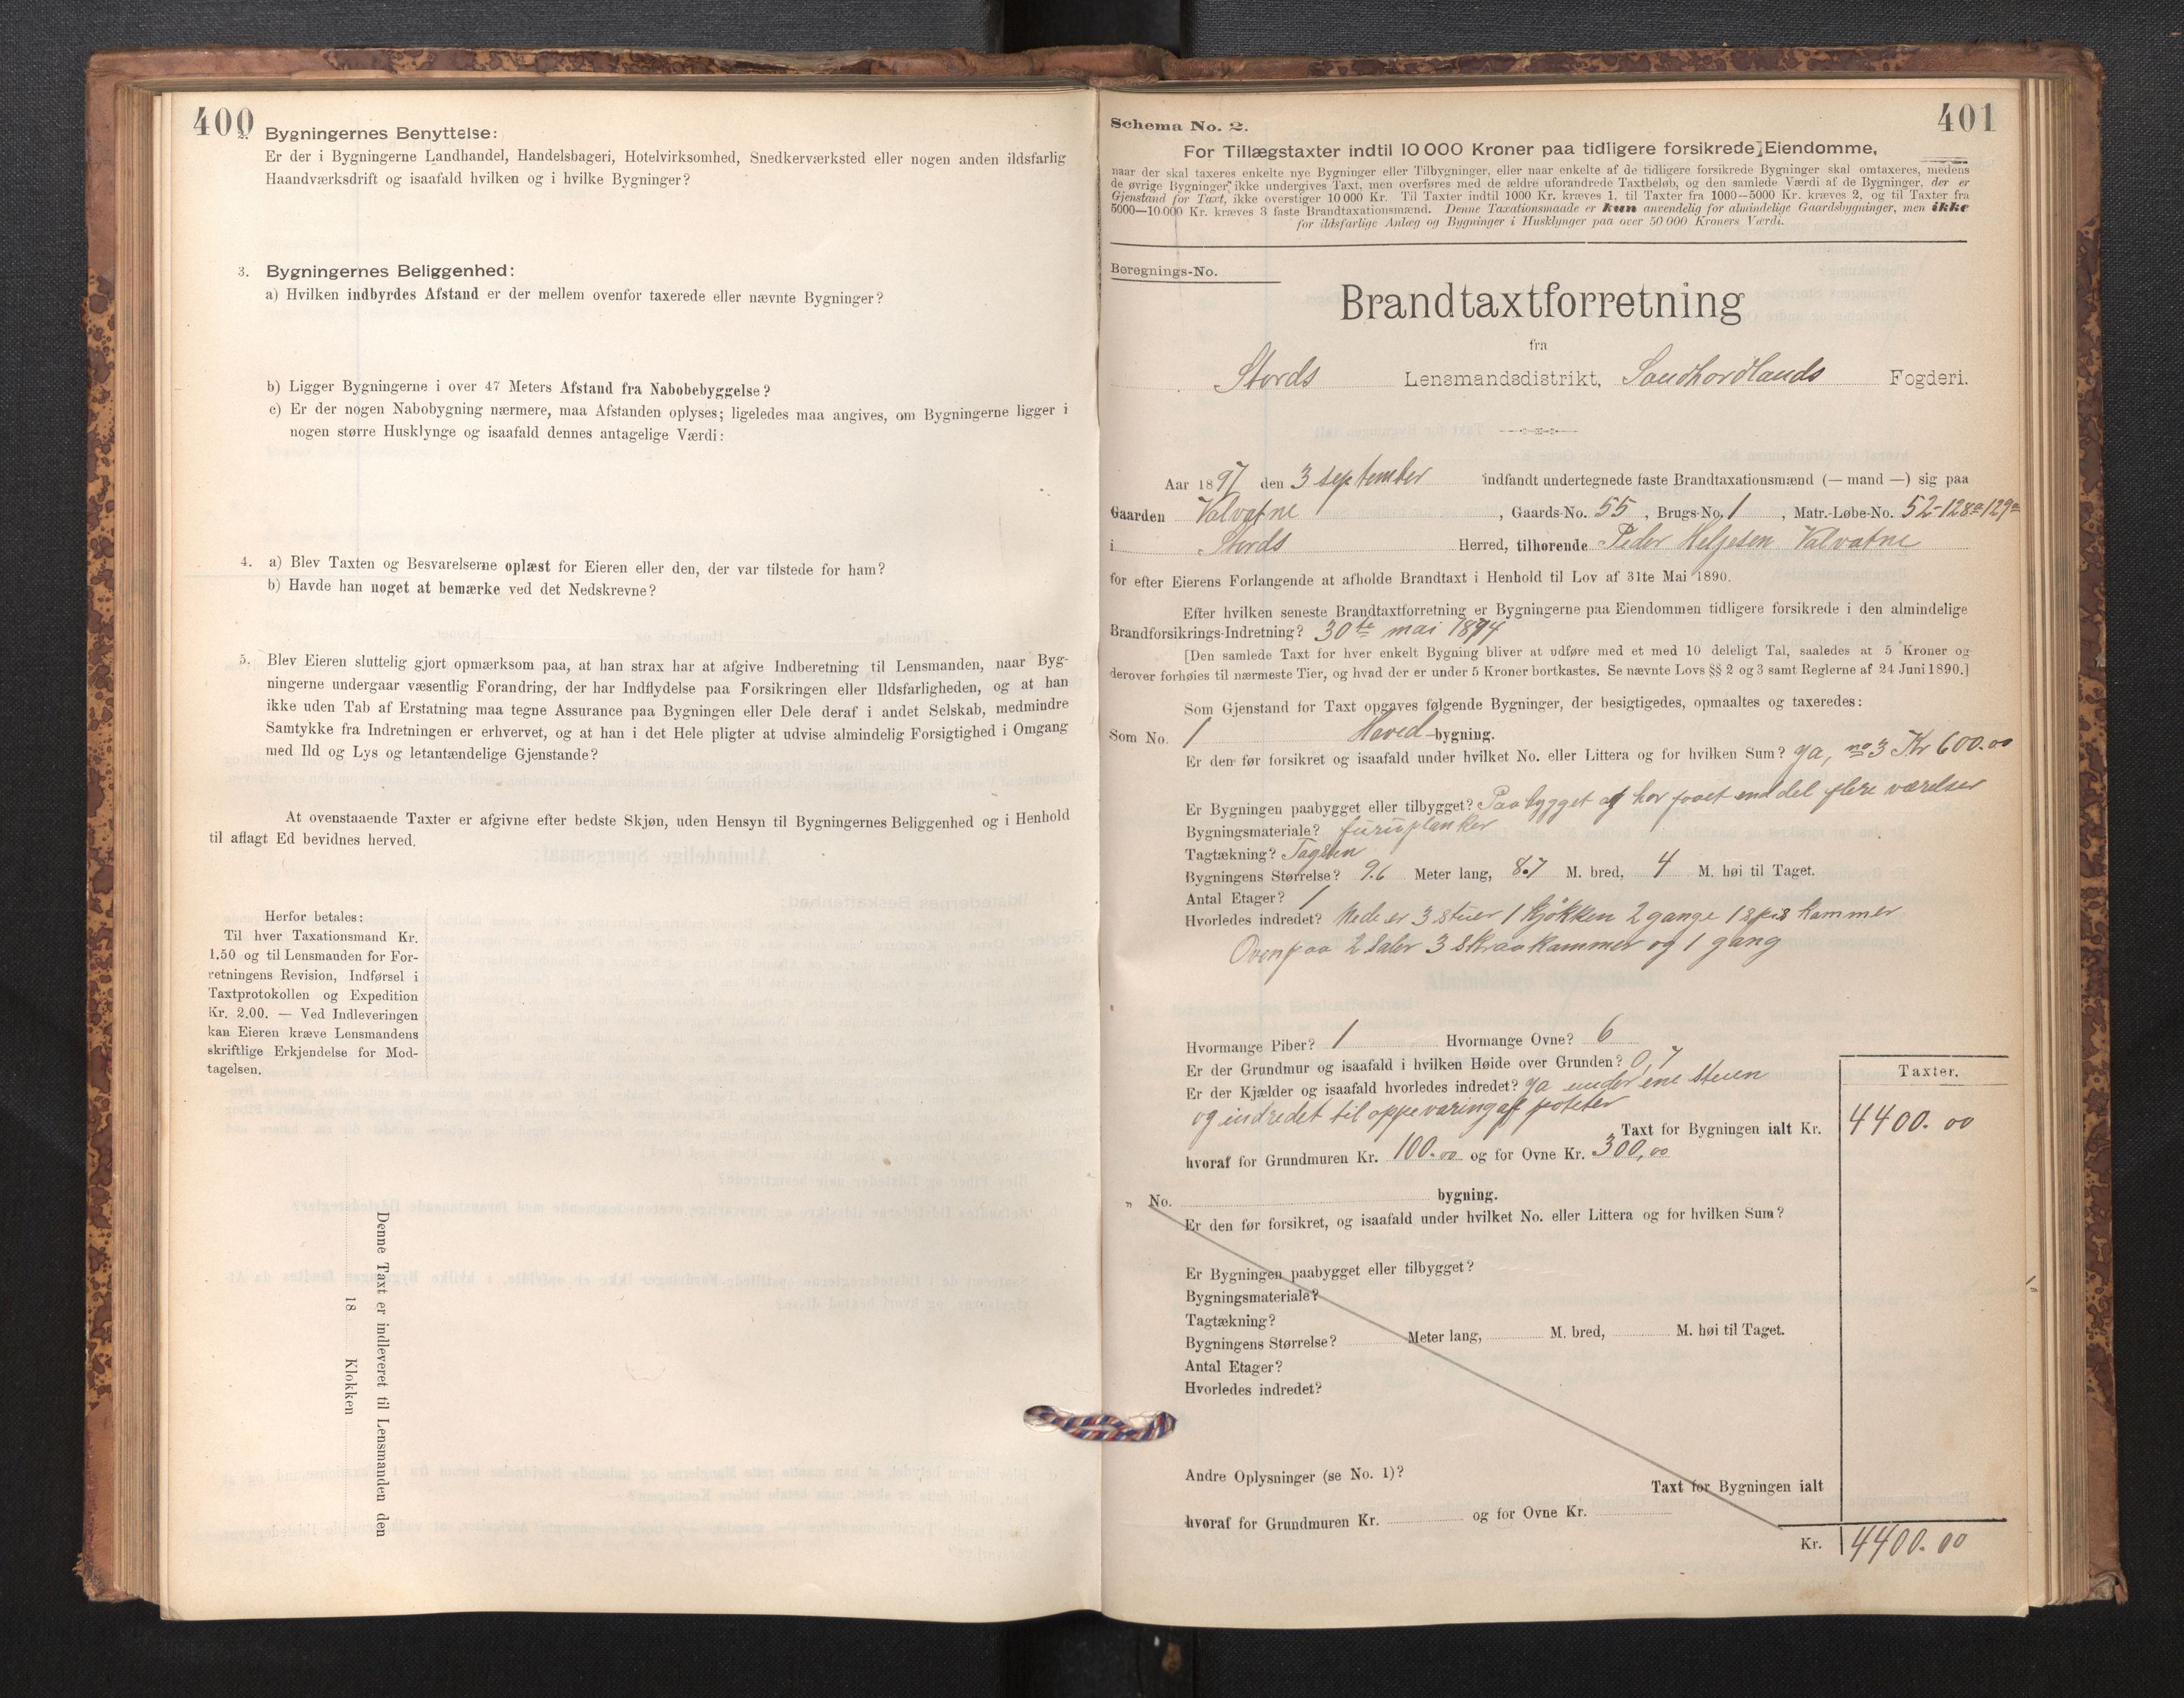 400
2. Bygningernes Benyttelse:
Er der i Bygningerne Landhandel, Handelsbageri, Hotelvirksomhed, Snedkerværksted eller nogen anden ildsfarlig
Haandværksdrift og isaafald hvilken og i hvilke Bygninger?
3. Bygningernes Beliggenhed:
a) Hvilken indbyrdes Afstand er der mellem ovenfor taxerede eller nævnte Bygninger?
b) Ligger Bygningerne i over 47 Meters Afstand fra Nabobebyggelse?
c) Er der nogen Nabobygning nærmere, maa Afstanden oplyses; ligeledes maa angives, om Bygningerne ligger i
nogen større Husklynge og isaafald dennes antagelige Værdi:
4. a) Blev Taxten og Besvarelserne oplæst for Eieren eller den, der var tilstede for ham?
b) Havde han noget at bemærke ved det Nedskrevne?
5. Blev Eieren sluttelig gjort opmærksom paa, at han strax har at afgive Indberetning til Lensmanden, naar Byg-
ningerne undergaar væsentlig Forandring, der har Indflydelse paa Forsikringen eller Ildsfarligheden, og at han
ikke uden Tab af Erstatning maa tegne Assurance paa Bygningen eller Dele deraf i andet Selskab, medmindre
Samtykke fra Indretningen er erhvervet, og at han i det Hele pligter at udvise almindelig Forsigtighed i Omgang
med Ild og Lys og letantændelige Gjenstande?
At ovenstaaende Taxter er afgivne efter bedste Skjøn, uden Hensyn til Bygningernes Beliggenhed og i Henhold
til aflagt Ed bevidnes herved.
Herfor betales:
Til hver Taxationsmand Kr.
1.50 og til Lensmanden for For-
retningens Revision, Indførsel i
Taxtprotokollen og Expedition
Kr. 2.00. — Ved Indleveringen
kan Eieren kræve Lensmandens
skriftlige Erkjendelse for Mod-
tagelsen.
Denne Taxt er indleveret til Lensmanden den
18 Klokken
Schema No. 2.
401
For Tillægstaxter indtil 10 000 Kroner paa tidligere forsikrede Eiendomme,
naar der skal taxeres enkelte nye Bygninger eller Tilbygninger, eller naar enkelte af de tidligere forsikrede Bygninger skal omtaxeres, medens
de øvrige Bygninger ikke undergives Taxt, men overføres med de ældre uforandrede Taxtbeløb, og den samlede Værdi af de Bygninger, der er
Gjenstand for Taxt, ikke overstiger 10 000 Kr. Til Taxter indtil 1000 Kr. kræves 1, til Taxter fra 1000—5000 Kr. kræves 2, og til Taxter fra
5000—10 000 Kr. kræves 3 faste Brandtaxationsmænd. Denne Taxationsmaade er kun anvendelig for almindelige Gaardsbygninger, men ikke
for ildsfarlige Anlæg og Bygninger i Husklynger paa over 50 000 Kroners Værdi.
Beregnings-No.
Brandtaxtforretning
fra
Stords Lensmandsdistrikt, Søndhordlands Fogderi.
Aar 1897 den 3 september indfandt undertegnede faste Brandtaxationsmænd (— mand —) sig paa
Gaarden Valvatne, Gaards-No. 55, Brugs-No. 1, Matr.-Løbe-No. 52-128a-129a
i Stords Herred, tilhørende Peder Helgesen Valvatne
for efter Eierens Forlangende at afholde Brandtaxt i Henhold til Lov af 31te Mai 1890.
Efter hvilken seneste Brandtaxtforretning er Bygningerne paa Eiendommen tidligere forsikrede i den almindelige
Brandforsikrings-Indretning? 30te mai 1894
[Den samlede Taxt for hver enkelt Bygning bliver at udføre med et med 10 deleligt Tal, saaledes at 5 Kroner og
derover forhøies til nærmeste Tier, og hvad der er under 5 Kroner bortkastes. Se nævnte Lovs §§ 2 og 3 samt Reglerne af 24 Juni 1890.]
Som Gjenstand for Taxt opgaves følgende Bygninger, der besigtigedes, opmaaltes og taxeredes:
Som No. 1 Hoved-bygning.
Er den før forsikret og isaafald under hvilket No. eller Littera og for hvilken Sum? Ja, no 3 Kr 600.00
Er Bygningen paabygget eller tilbygget? Paabygget og har faaet end del flere værelser
Bygningsmateriale? furuplanker
Tagtækning? Tagsten
Bygningens Størrelse? 9.6 Meter lang, 8.7 M. bred, 4 M. høi til Taget.
Antal Etager? 1
Hvorledes indredet? Nede er 3 stuer 1 kjøkken 2 gange 1 spis kammer
Ovenpaa 2 saler 3 skraakammer og 1 gang
Hvormange Piber? 1 Hvormange Ovne? 6
Er der Grundmur og isaafald i hvilken Høide over Grunden? 0,7
Er der Kjælder og isaafald hvorledes indredet? Ja under ene stuen
og indredet til oppevaring af poteter
Taxter.
Taxt for Bygningen ialt Kr. 4400.00
hvoraf for Grundmuren Kr. 100.00 og for Ovne Kr. 300,00
„ No. bygning.
Er den før forsikret, og isaafald under hvilket No. eller Littera og for hvilken Sum?
Er Bygningen paabygget eller tilbygget?
Bygningsmateriale?
Tagtækning?
Bygningens Størrelse? Meter lang, M. bred, M. høi til Taget.
Antal Etager?
Hvorledes indredet?
Andre Oplysninger (se No. 1)?
Taxt for Bygningen ialt
hvoraf for Grundmuren Kr. og for Ovne Kr.
Kr. 4400.00